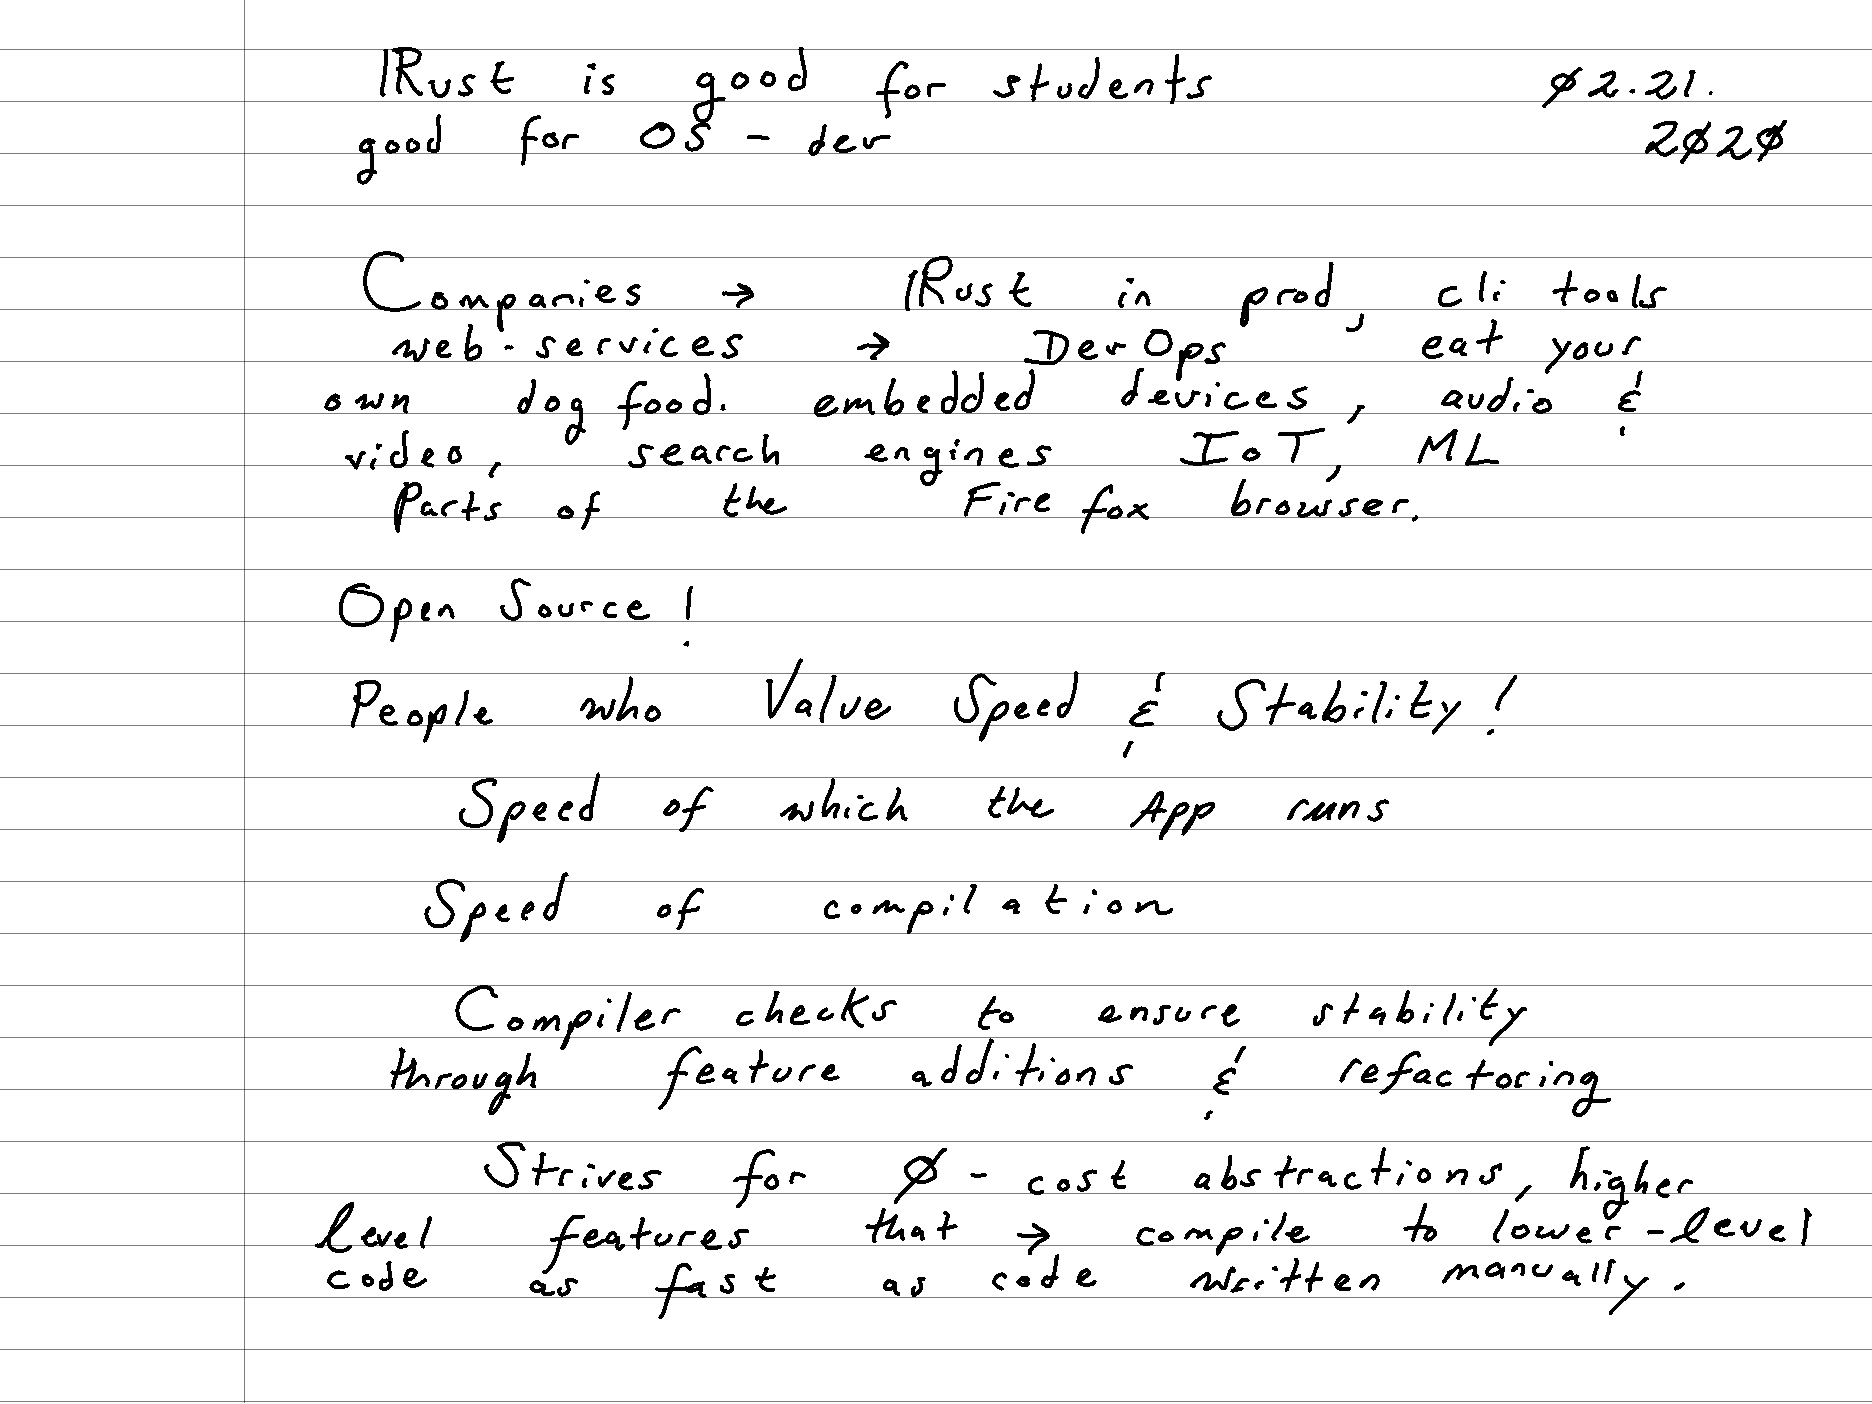 Rust is good for students
ø2.21.
good for OS - dev
2ø2ø
Companies → Rust in prod, cli tools
web-services → DevOps eat your
own dog food. embedded devices, audio &
video, search engines IoT, ML
Parts of the Firefox browser.
Open Source!
People who Value Speed & Stability!
Speed of which the App runs
Speed of compilation
Compiler checks to ensure stability
through feature additions & refactoring
Strives for ø-cost abstractions, higher
level features that → compile to lower-level
code as fast as code written manually.